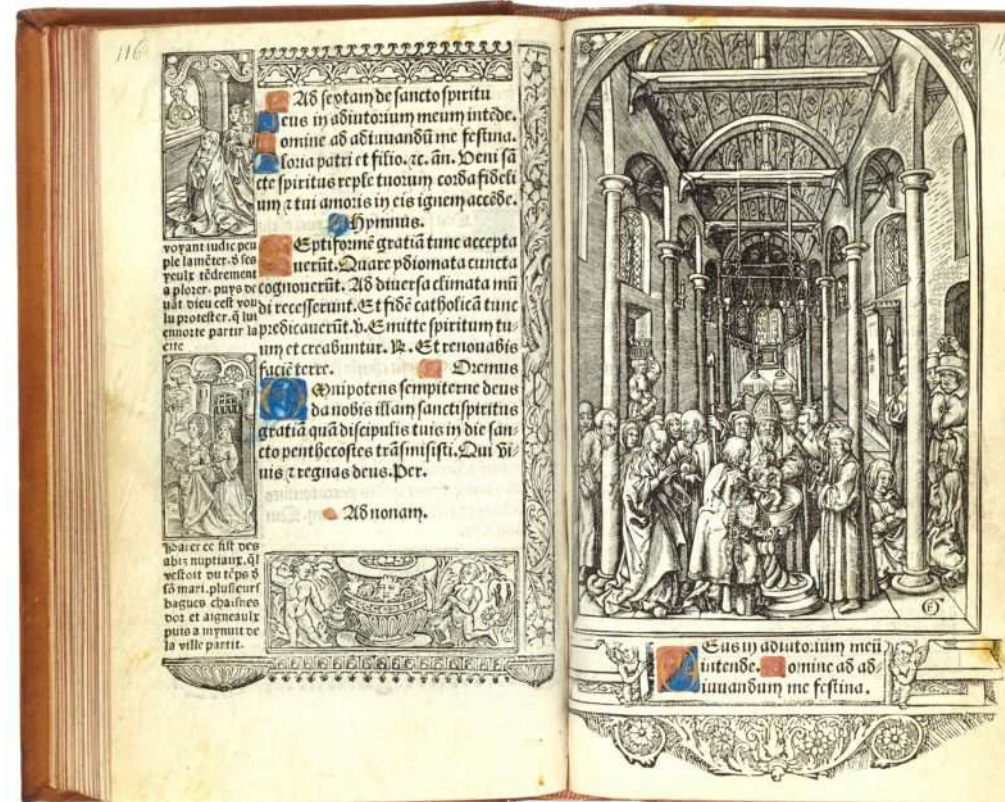 116
Ad sextam de sancto spiritu
Deus in adiutorium meum intēde.
Domine ad adiuuandū me festina.
Gloria patri et filio. ⁊c. ān. Veni sā
cte spiritus reple tuorum corda fideli
um ⁊ tui amoris in eis ignem accēde.
Hymnus.
SEptiformē gratiā tunc accepta
uerūt. Quare ydiomata cuncta
cognouerūt. Ad diuersa climata mū
di recesserunt. Et fidē catholicā tunc
predicauerūt. ℣. Emitte spiritum tu-
um et creabuntur. ℟. Et renouabis
faciē terre. Oremus
OMnipotens sempiterne deus
da nobis illam sanctispiritus
gratiā quā discipulis tuis in die san-
cto penthecostes trāsmisisti. Qui vi-
uis ⁊ regnas deus. Per.
Ad nonam.
voyant iudic peu
ple lamēter. d ses
yeulx tēdrement
a plorer. puys de
uāt dieu cest vou
lu protester. q̄ lui
ennorte partir la
cite
Parer ce fist des
abiz nuptiaux. q̄l
vestoit du tēps d
sō mari. plusieurs
bagues chaisnes
dor et aigneaulx
puis a mynuit de
la ville partit.
DEus in adiuto.ium meū
intende. Domine ad ad-
iuuandum me festina.